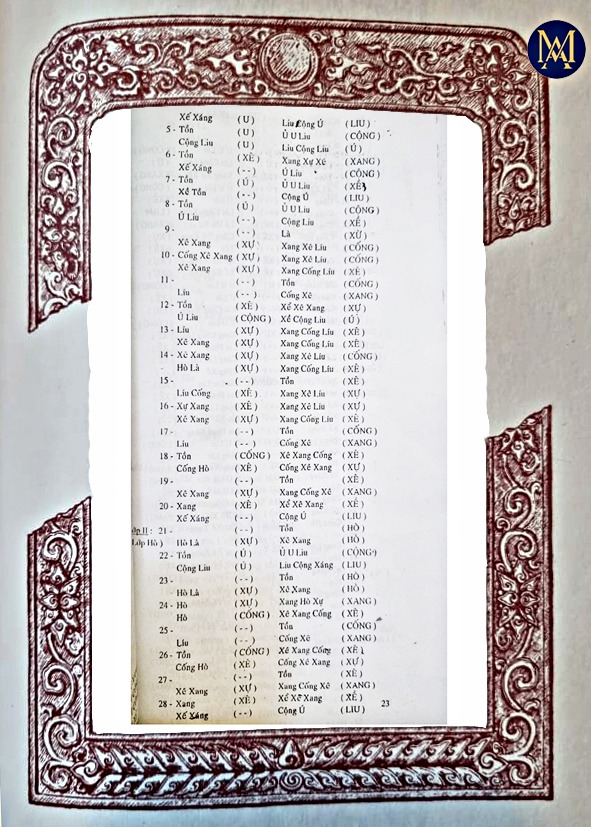 Xế Xáng (U) Liu Cộng Ú (LIU)
5 - Tồn (U) Ủ U Liu (CỘNG)
Cộng Liu (U) Liu Cộng Liu (Ú)
6 - Tồn (XÊ) Xang Xự Xê (XANG)
Xế Xáng (--) Ú Liu (CỘNG)
7 - Tồn (Ú) Ủ U Liu (XẾ)
Xề Tồn (--) Cộng Ú (LIU)
8 - Tồn (Ú) Ủ U Liu (CỘNG)
Ú Liu (--) Cộng Liu (XỀ)
9 - (--) Là (XỪ)
Xê Xang (XỰ) Xang Xê Liu (CỐNG)
10 - Cống Xê Xang (XỰ) Xang Xê Liu (CỐNG)
Xê Xang (XỰ) Xang Cống Líu (XÊ)
11 - (--) Tồn (CỐNG)
Liu (--) Cống Xê (XANG)
12 - Tồn (XÊ) Xể Xê Xang (XỰ)
Ú Liu (CỘNG) Xề Cộng Liu (Ú)
13 - Líu (XỰ) Xang Cống Líu (XÊ)
Xê Xang (XỰ) Xang Cống Líu (XÊ)
14 - Xê Xang (XỰ) Xang Xê Líu (CỐNG)
Hò Là (XỰ) Xang Cống Líu (XÊ)
15 - (--) Tồn (XÊ)
Líu Cống (XÊ) Xang Xê Líu (XỰ)
16 - Xự Xang (XÊ) Xang Xê Líu (XỰ)
Xê Xang (XỰ) Xang Cống Líu (XÊ)
17 - (--) Tồn (CỐNG)
Líu (--) Cống Xê (XANG)
18 - Tồn (CỐNG) Xê Xang Cống (XÊ)
Cống Hò (XÊ) Cống Xê Xang (XỰ)
19 - (--) Tồn (XÊ)
Xê Xang (XỰ) Xang Cống Xê (XANG)
20 - Xang (XÊ) Xể Xê Xang (XÊ)
Xế Xáng (--) Cộng Ú (LIU)
ớp II : 21 - (--) Tồn (HÒ)
Lớp Hò) Hò Là (XỰ) Xê Xang (HÒ)
22 - Tồn (Ú) Ủ U Liu (CỘNG)
Cộng Liu (Ú) Liu Cộng Xáng (LIU)
23 - (--) Tồn (HÒ)
Hò Là (XỰ) Xê Xang (HÒ)
24 - Hò (XỰ) Xang Hò Xự (XANG)
Hò (CỐNG) Xê Xang Cống (XÊ)
25 - (--) Tồn (CỐNG)
Líu (--) Cống Xê (XANG)
26 - Tồn (CỐNG) Xê Xang Cống (XÊ)
Cống Hò (XÊ) Cống Xê Xang (XỰ)
27 - (--) Tồn (XÊ)
Xê Xang (XỰ) Xang Cống Xê (XANG)
28 - Xang (XÊ) Xể Xê Xang (XÊ) 23
Xế Xáng (--) Cộng Ú (LIU)